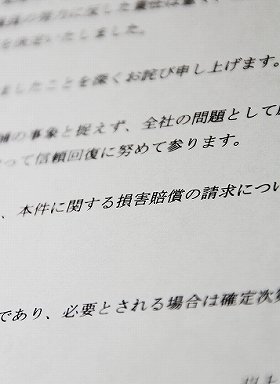 を決定いたしました。
ましたことを深くお詫び申し上げます。
の事象と捉えず、全社の問題として
って信頼回復に努めて参ります。
、本件に関する損害賠償の請求につい
であり、必要とされる場合は確定次第